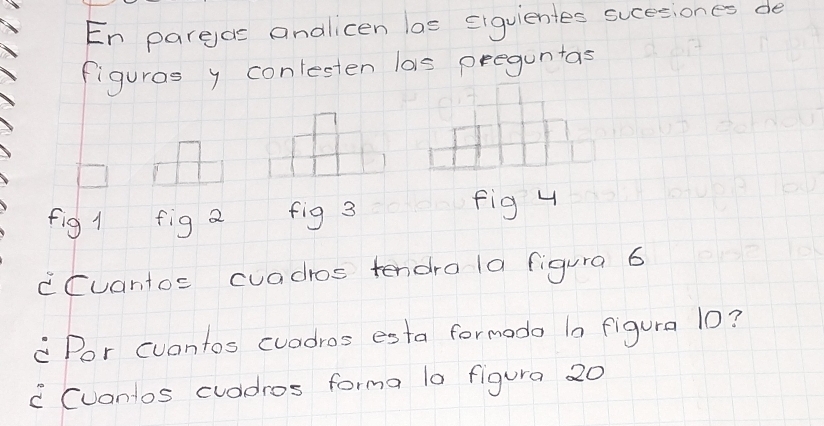 En parejas analicen las siguientes sucesiones de
figuras y contesten las preguntas
fig 1 fig 2 fig 3 fig 4
¿Cuantos cuadros tendra la figura 6
¿Por cuantos cuadros esta formada la figura 10?
¿Cuantos cuadros forma la figura 20